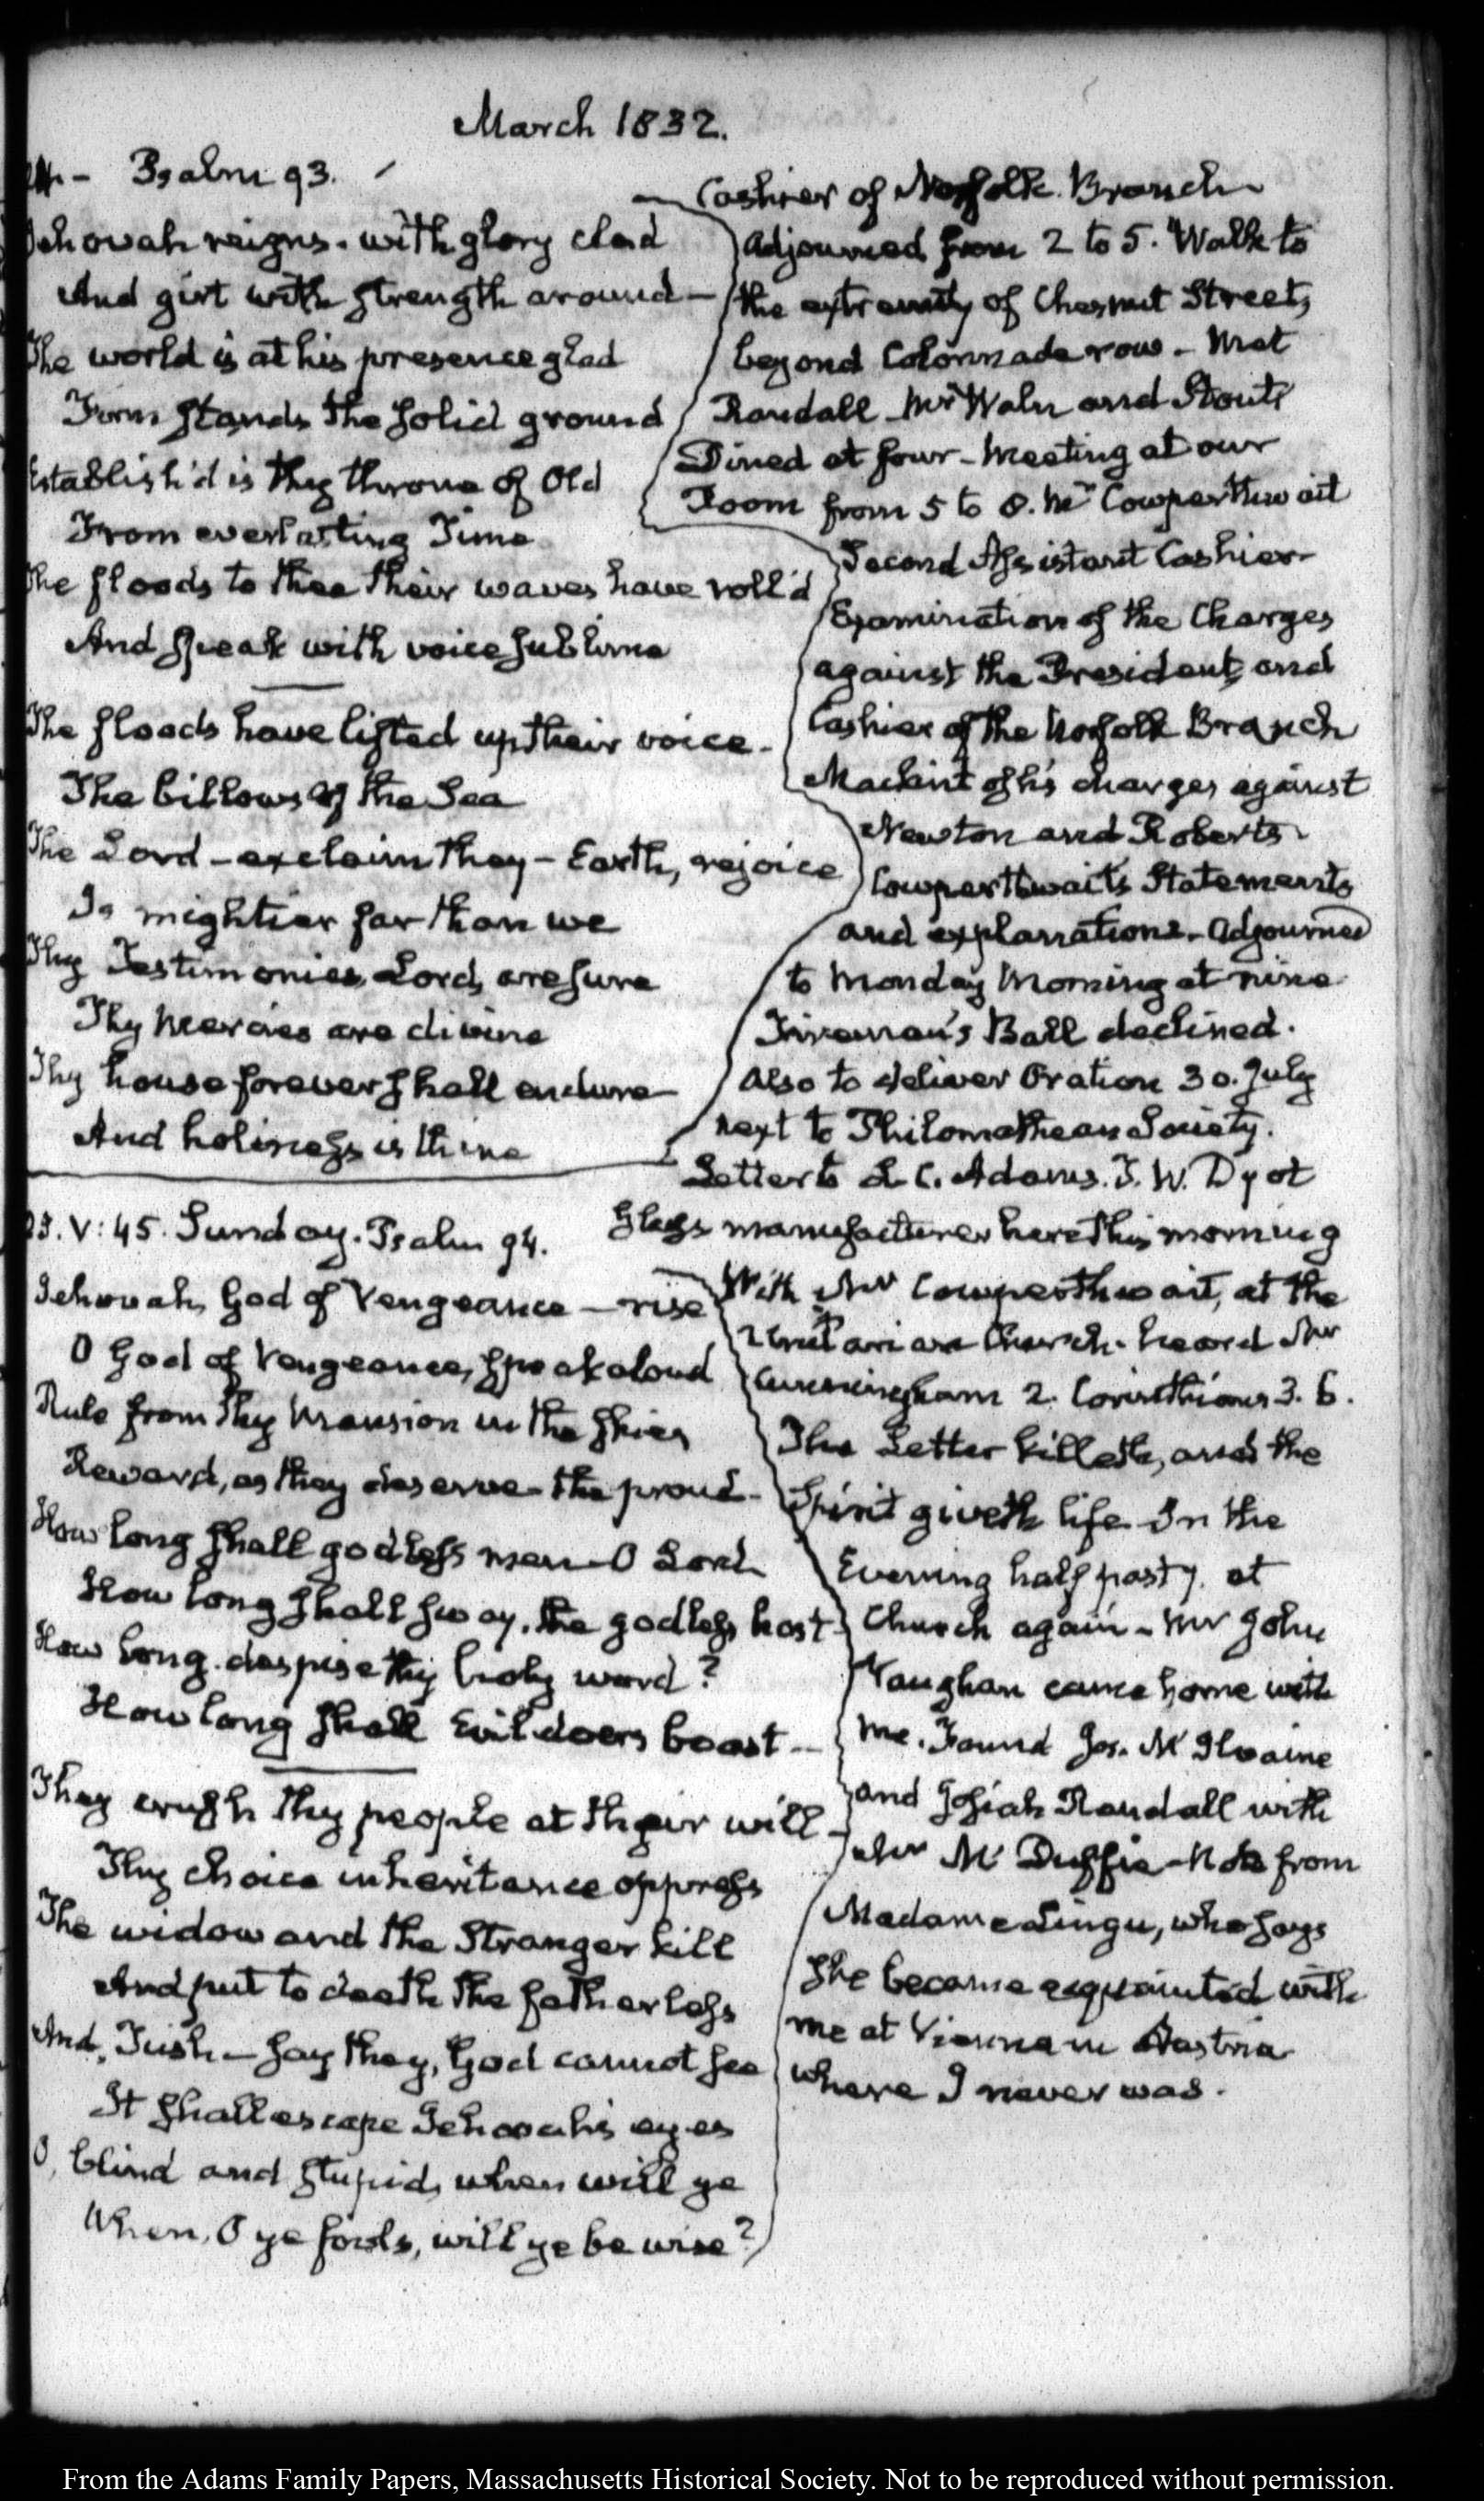 March 1832.
24.- Psalm 93.
Jehovah reigns. with glory clad
And girt with strength around-
The world is at his presence glad
Firm stands the solid ground
Establish'd is thy throne of Old
From everlasting Time
The floods to thee their waves have roll'd
And speak with voice sublime
The floods have lifted up their voice-
The billows of the Sea
The Lord - exclaim they - Earth, rejoice
Is mightier far than we
Thy Testimonies, Lord, are sure
Thy Mercies are divine
Thy house forever shall endure
And holiness is thine
Cashier of Norfolk Branch
Adjourned from 2 to 5. Walk to
the extremity of Chesnut Street,
beyond Colonnade row - Met
Randall Mr Waln and Stout
Dined at four - Meeting at our
Room from 5 to 8. Mr Cowperthwait
Second Assistant Cashier-
Examination of the Charges
against the President and
Cashier of the Norfolk Branch
of his charges against
Newton and Roberts
Cowperthwait's Statements
and explanations - adjourned
to Monday Morning at nine
Fireman's Ball declined.
Also to deliver Oration 30. July
next to Philomathean Society.
Letter to L. C. Adams. T. W. Dyot
Glass manufacturer here this morning
25. V: 45. Sunday. Psalm 94.
Jehovah, God of Vengeance - rise
O God of Vengeance, speak aloud
Rule from thy Mansion in the skies
Reward, as they deserve the proud-
How long shall godless men - O Lord
How long shall sway, the godless host
How long despise thy holy word?
How long shall Evildoers boast -
They crush thy people at their will -
Thy choice inheritance oppress
The widow and the Stranger kill
And put to death the fatherless
And, Tush - say they, God cannot see
It shall escape Jehovah's eyes
O, blind and stupid, when will ye
When, O ye fools, will ye be wise?
With Mr Cowperthwait, at the
Unitarian Church. heard Mr
Cunningham 2. Corinthians 3. 6.
The Letter killeth, and the
Spirit giveth life In the
Evening half past 7. at
Church again - Mr John
Vaughan came home with
me. Found Jos. McIlvaine
and Josiah Randall with
Mr McDuffie - Note from
Madame Lingu, who says
She became acquainted with
me at Vienna in Austria
where I never was.
From the Adams Family Papers, Massachusetts Historical Society. Not to be reproduced without permission.